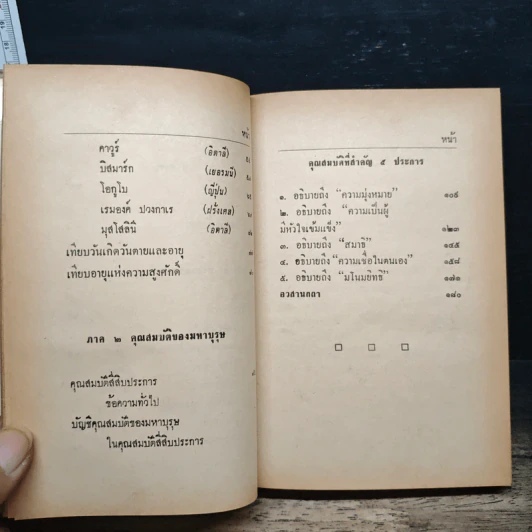 หน้
คาวูร์ (อิตาลี)
บิสมาร์ก (เยอรมนี)
โอกูโบ (ญี่ปุ่น)
เรมองค์ ปวงกาเร (ฝรั่งเศส)
มุสโสลินี (อิตาลี)
เทียบวันเกิดวันตายและอายุ
เทียบอายุแห่งความสูงศักดิ์
ภาค ๒ คุณสมบัติของมหาบุรุษ
คุณสมบัติสี่สิบประการ
ข้อความทั่วไป
บัญชีคุณสมบัติของมหาบุรุษ
ในคุณสมบัติสี่สิบประการ
หน้า
คุณสมบัติที่สำคัญ ๕ ประการ
๑. อธิบายถึง “ความมุ่งหมาย” ๑๐๕
๒. อธิบายถึง “ความเป็นผู้
มีหัวใจเข้มแข็ง” ๑๒๓
๓. อธิบายถึง “สมาธิ” ๑๔๕
๔. อธิบายถึง “ความเชื่อในตนเอง” ๑๕๘
๕. อธิบายถึง “มโนมยิทธิ” ๑๗๑
อวสานกถา ๑๘๐